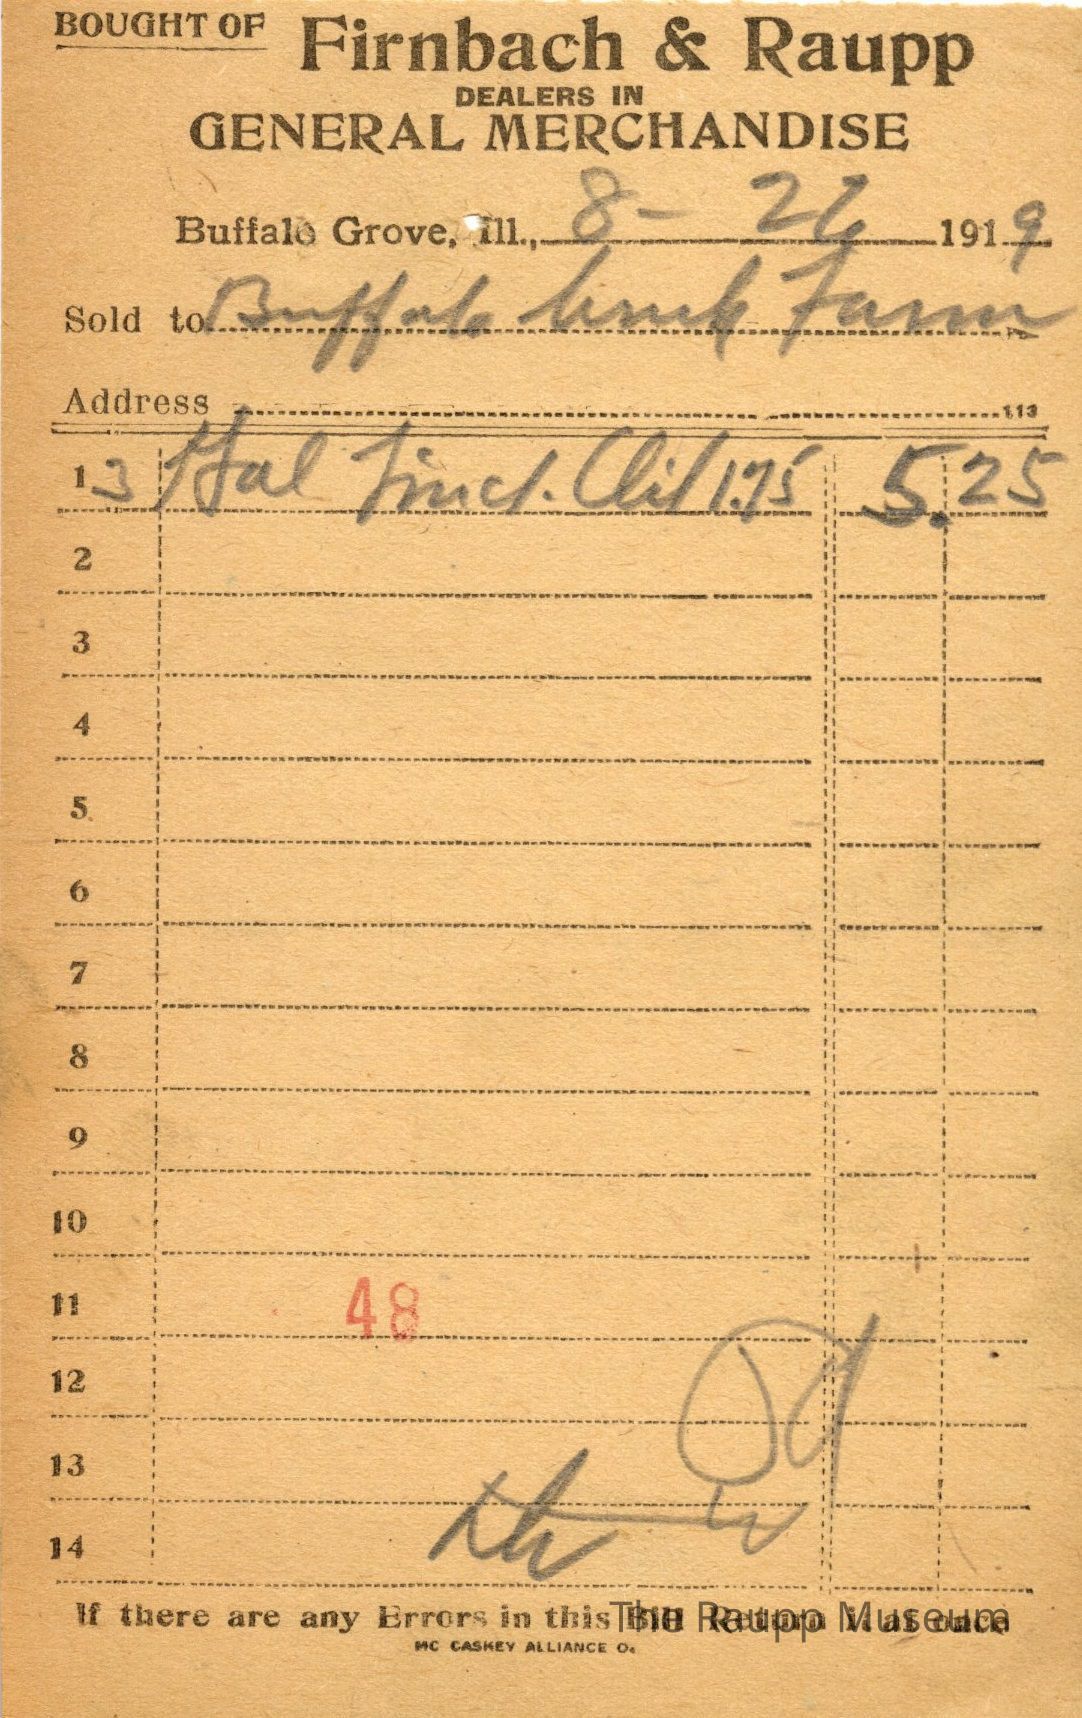 BOUGHT OF Firnbach & Raupp
DEALERS IN
GENERAL MERCHANDISE
Buffalo Grove, Ill., 8 - 26 1919
Sold to Buffalo Creek Farm
Address
113
1 3 Gal Oil 1.75 5.25
2
3
4
5
6
7
8
9
10
11 48
12
13
14
If there are any Errors in this Bill Return it at once
The Raupp Museum
MC CASKEY ALLIANCE O.